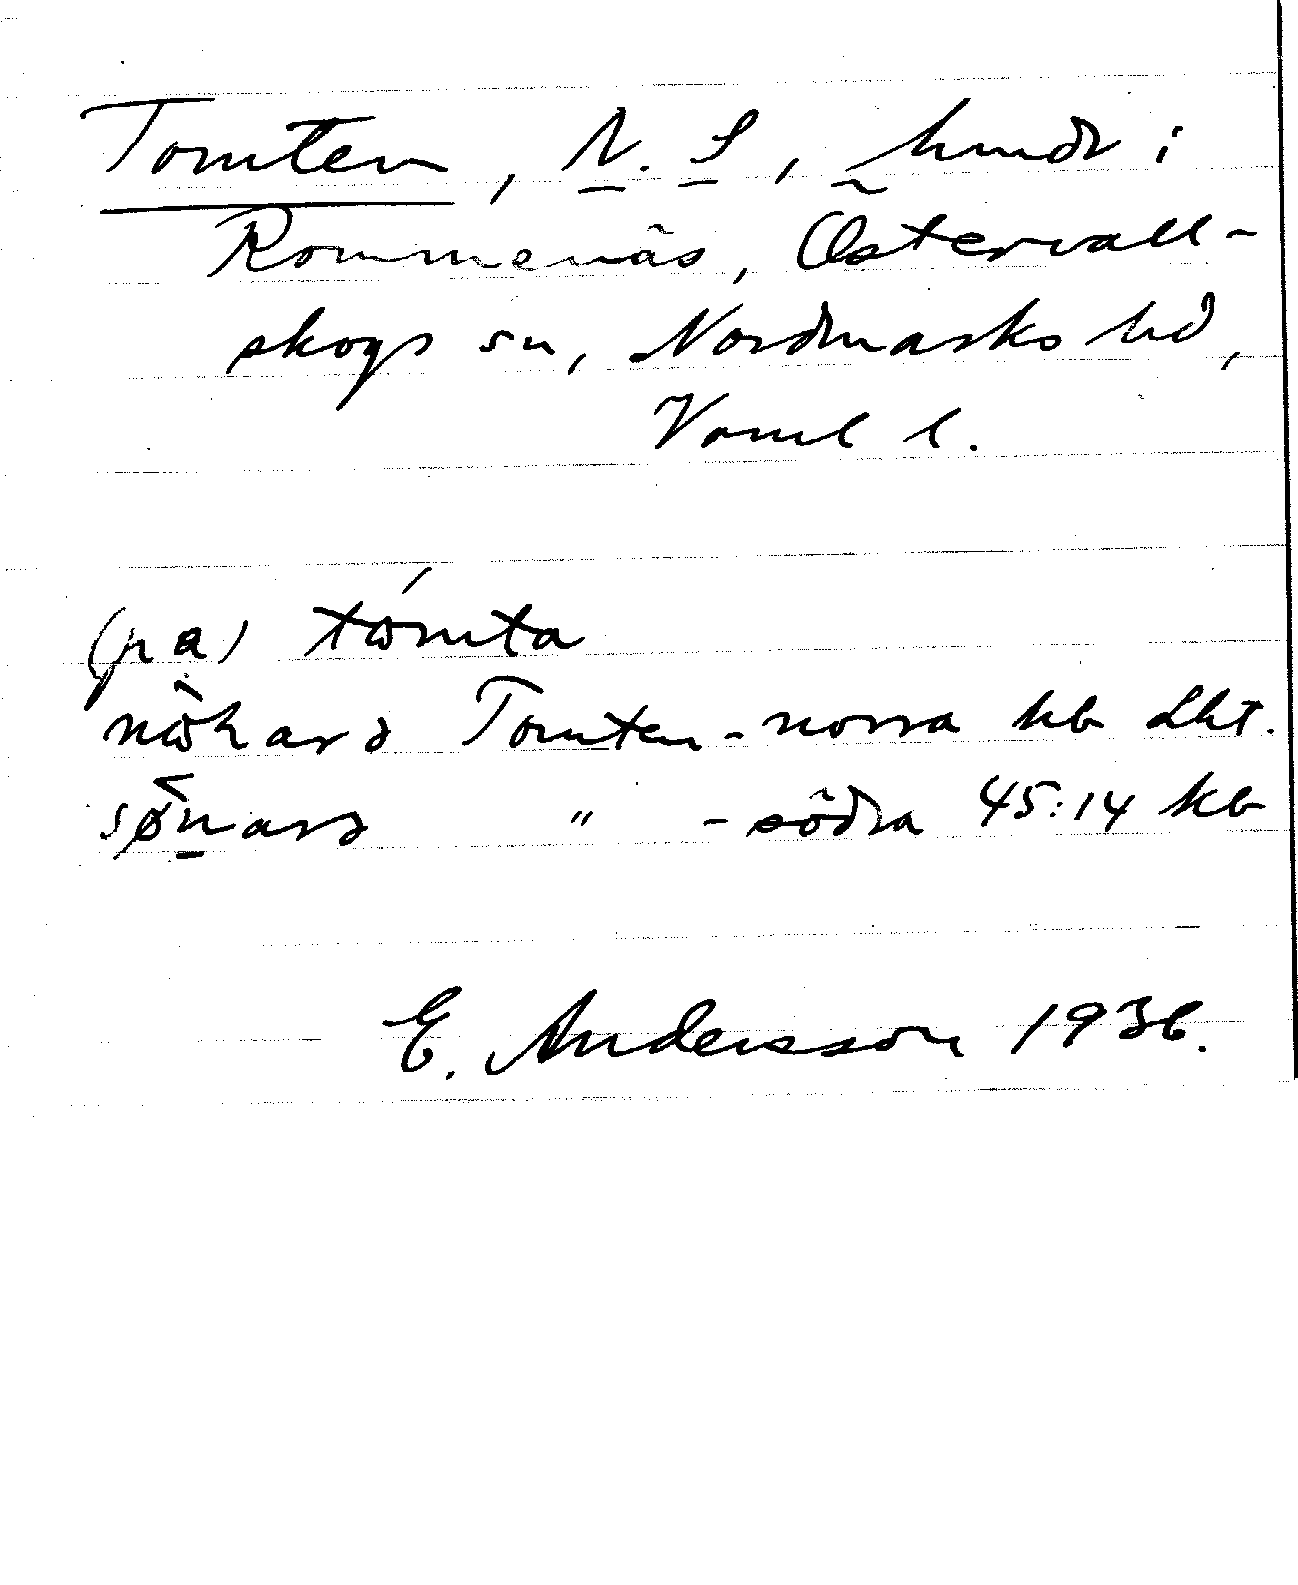 Tomten, N. S,  i
Rommenäs, Östervall-
skogs sn, Nordmarks hd,
Värml l.
(på) tómta
Tomten-norra kb
" -södra 45:14 kb
E. Andersson 1936.